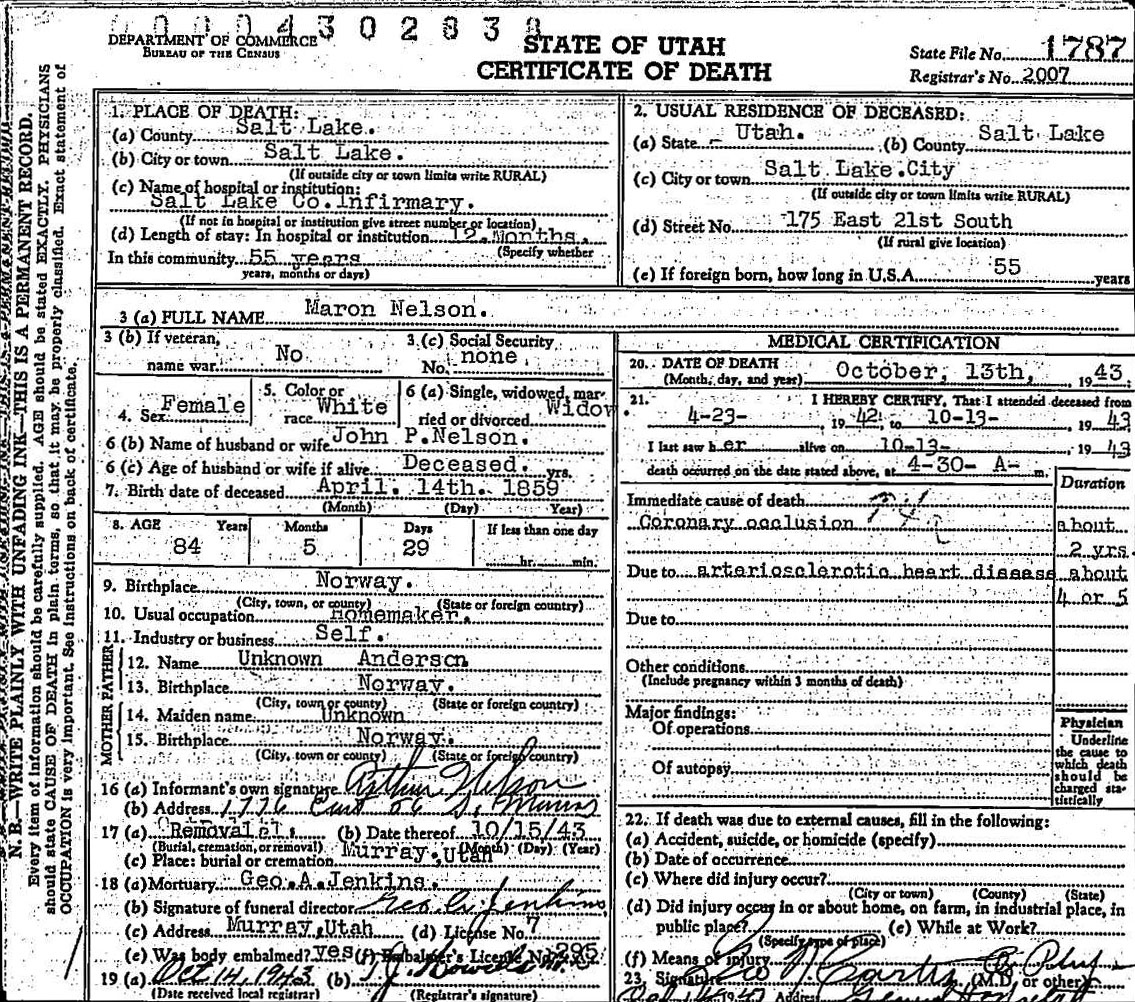 0 0 0 0 4 3 0 2 8 3 8
DEPARTMENT OF COMMERCE
BUREAU OF THE CENSUS
STATE OF UTAH
CERTIFICATE OF DEATH
State File No. 1787
Registrar's No. 2007
N. B.—WRITE PLAINLY WITH UNFADING INK—THIS IS A PERMANENT RECORD.
Every item of information should be carefully supplied. AGE should be stated EXACTLY. PHYSICIANS
should state CAUSE OF DEATH in plain terms, so that it may be properly classified. Exact statement of
OCCUPATION is very important. See instructions on back of certificate.
1. PLACE OF DEATH:
(a) County Salt Lake.
(b) City or town Salt Lake.
(If outside city or town limits write RURAL)
(c) Name of hospital or institution:
Salt Lake Co. Infirmary.
(If not in hospital or institution give street number or location)
(d) Length of stay: In hospital or institution 12 Months.
(Specify whether
In this community 55 years
years, months or days)
2. USUAL RESIDENCE OF DECEASED:
(a) State Utah. (b) County Salt Lake
(c) City or town Salt Lake City
(If outside city or town limits write RURAL)
(d) Street No. 175 East 21st South
(If rural give location)
(e) If foreign born, how long in U.S.A. 55 years
3 (a) FULL NAME Maron Nelson.
3 (b) If veteran, name war No
3 (c) Social Security No. none
4. Sex Female
5. Color or race White
6 (a) Single, widowed, married or divorced Widow
6 (b) Name of husband or wife John P. Nelson.
6 (c) Age of husband or wife if alive Deceased. yrs.
7. Birth date of deceased April. 14th. 1859
(Month) (Day) Year)
8. AGE Years Months Days If less than one day
84 5 29 hr. min.
9. Birthplace Norway.
(City, town, or county) (State or foreign country)
10. Usual occupation Homemaker.
11. Industry or business Self.
FATHER
12. Name Unknown Anderson
13. Birthplace Norway.
(City, town or county) (State or foreign country)
MOTHER
14. Maiden name Unknown
15. Birthplace Norway.
(City, town or county) (State or foreign country)
16 (a) Informant's own signature Arthur Nelson
(b) Address 1776 East 56 S. Murray
17 (a) Removal (b) Date thereof 10/15/43
(Burial, cremation, or removal) (Month) (Day) (Year)
(c) Place: burial or cremation Murray, Utah
18 (a) Mortuary Geo. A. Jenkins.
(b) Signature of funeral director Geo A. Jenkins
(c) Address Murray, Utah (d) License No. 7
(e) Was body embalmed? yes (f) Embalmer's License No. 295
19 (a) Oct 14, 1943 (b)
(Date received local registrar) (Registrar's signature)
MEDICAL CERTIFICATION
20. DATE OF DEATH
(Month, day, and year) October, 13th, 1943
21. I HEREBY CERTIFY, That I attended deceased from
4-23- 1942 to 10-13- 1943
I last saw her alive on 10-13- 1943
death occurred on the date stated above, at 4-30- A- m.
Duration
Immediate cause of death
Coronary occlusion about
2 yrs.
Due to arteriosclerotic heart disease about
4 or 5
Due to
Other conditions
(Include pregnancy within 3 months of death)
Major findings:
Of operations
Of autopsy
Physician
Underline
the cause to
which death
should be
charged sta-
tistically
22. If death was due to external causes, fill in the following:
(a) Accident, suicide, or homicide (specify)
(b) Date of occurrence
(c) Where did injury occur?
(City or town) (County) (State)
(d) Did injury occur in or about home, on farm, in industrial place, in
public place? (e) While at Work?
(Specify type of place)
(f) Means of injury
23. Signature (M.D. or other)
Address